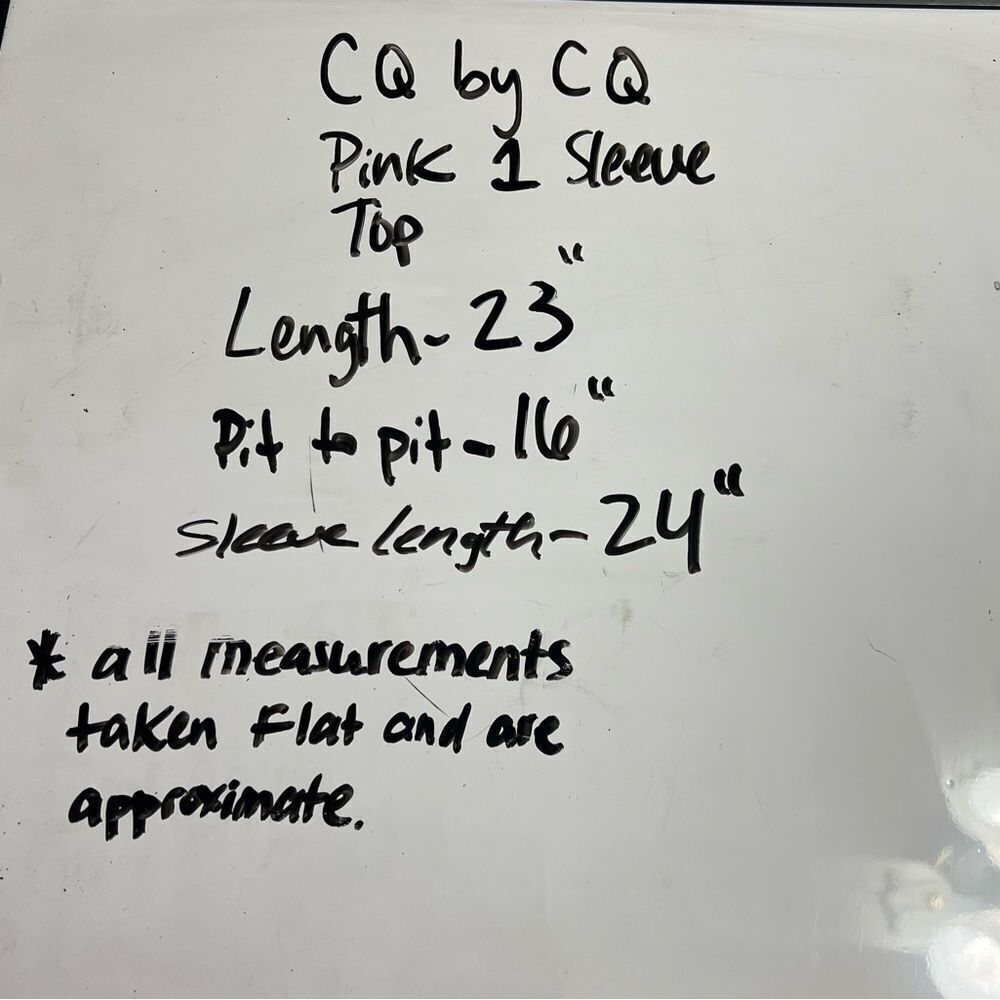 CQ by CQ
Pink 1 Sleeve
Top
Length- 23"
Pit to pit - 16"
Sleeve length- 24"
* all measurements
taken flat and are
approximate.